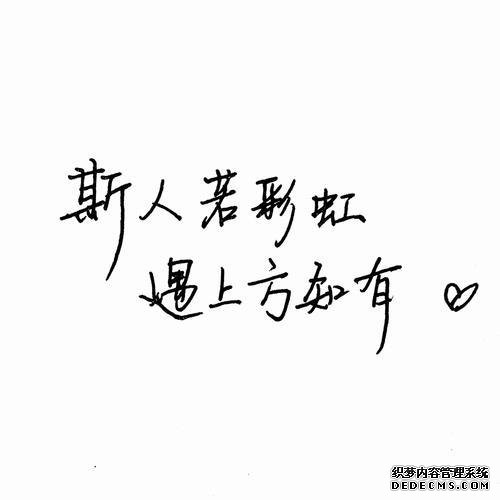 斯人若彩虹
遇上方知有 ♡
织梦内容管理系统
DEDECMS.COM